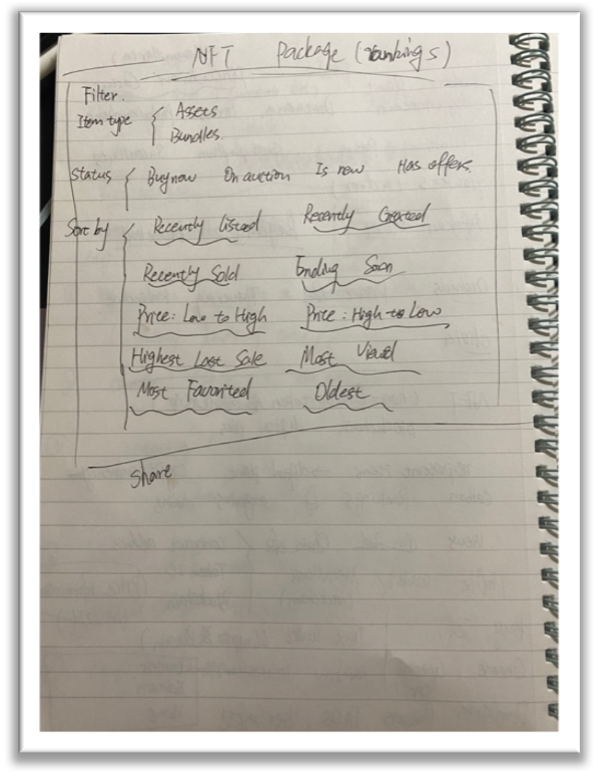 NFT Package (rankings)
Filter.
Item type { Assets
Bundles.
Status { Buy now On auction Is new Has offers.
Sort by { Recently Listed Recently Created
Recently Sold Ending Soon
Price: Low to High Price: High to Low
Highest Last Sale Most Viewed
Most Favorited Oldest
Share